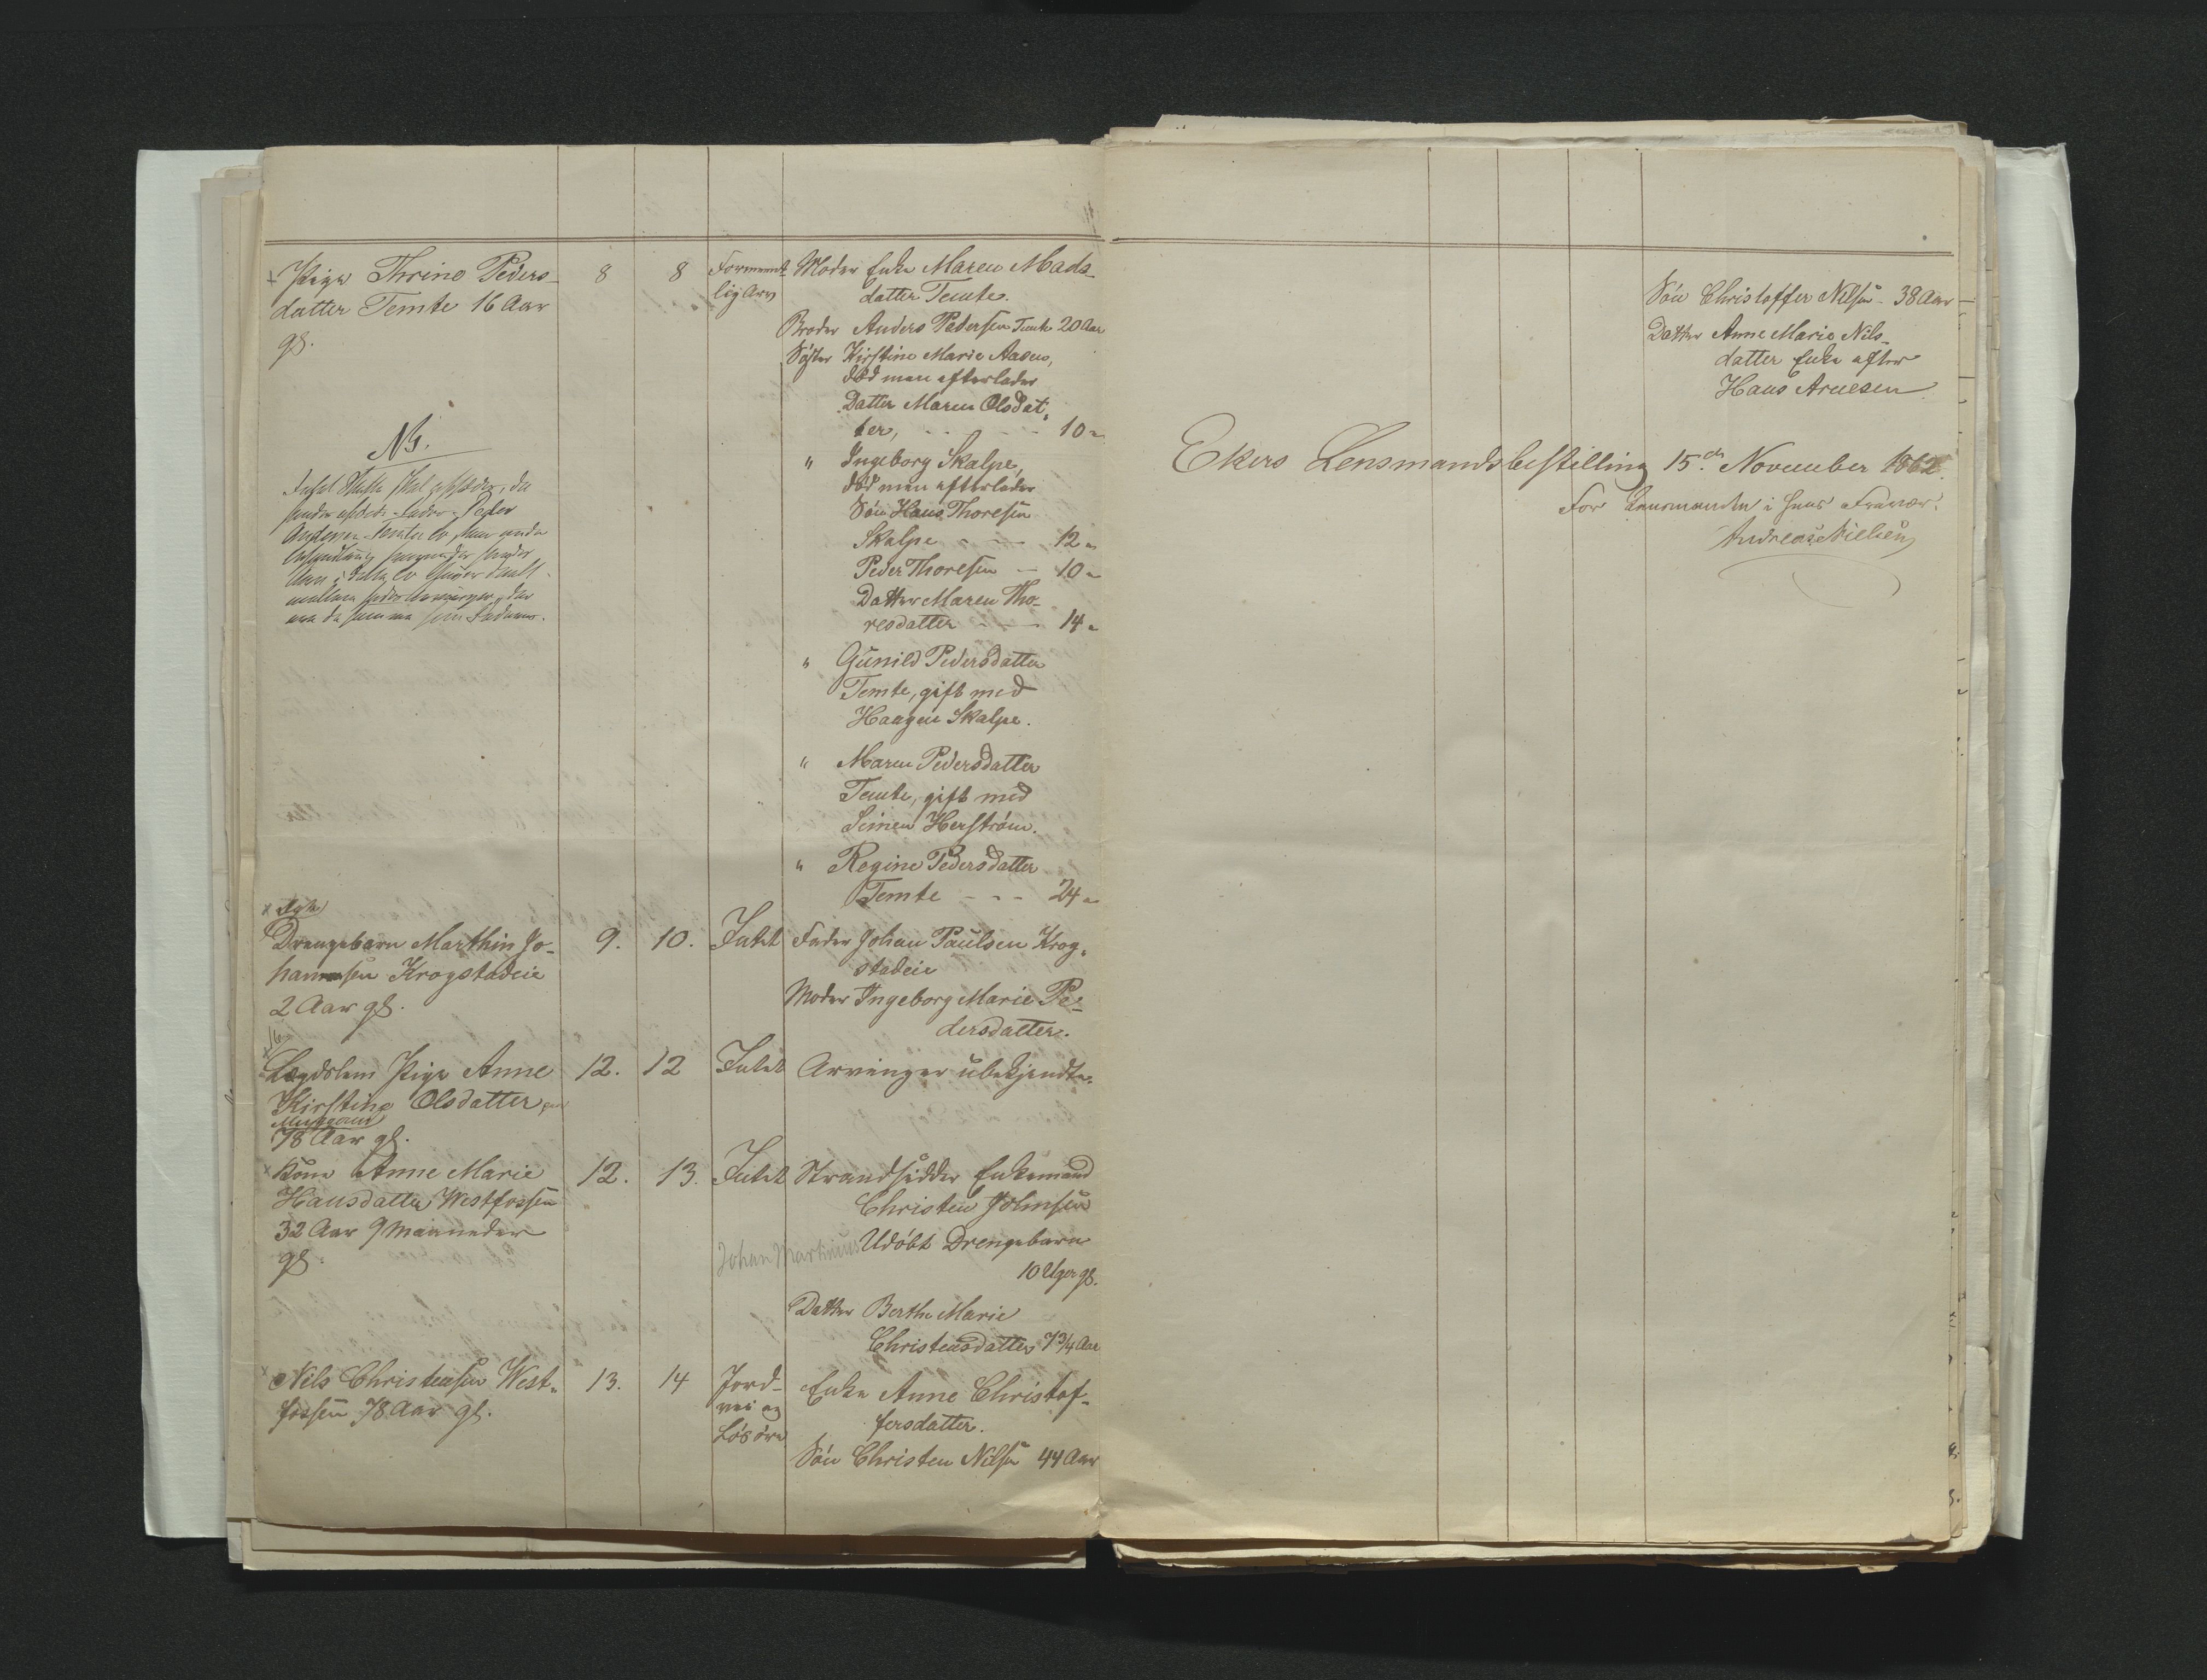 Pige Thrine Peders-
datter Temte 16 Aar
gl.
8 8 Forment-
lig Arv
Moder Enke Maren Mads-
datter Temte.
Broder Anders Pedersen Temte 20 Aar
Søster Kirstine Marie Aasen,
død men efterlader
Datter Maren Olsdat-
ter, - - - 10 "
" Ingeborg Skalpe,
død men efterlader
Søn Hans Thoresen
Skalpe - - 12 "
Peder Thoresen - 10 "
Datter Maren Tho-
resdatter - - 14 "
" Gunild Pedersdatter
Temte, gift med
Haagen Skalpe.
" Maren Pedersdatter
Temte, gift med
Simen Herström.
" Regine Pedersdatter
Temte - - - 24 "
NB.
Drengebarn Marthin Jo-
hannsen Krogstadeie
2 Aar gl.
9. 10. Intet
Fader Johan Paulsen Krog-
stadeie
Moder Ingeborg Marie Pe-
dersdatter.
Lægdslem Pige Anne
Kirstine Olsdatter
78 Aar gl.
12. 12 Intet Arvinger ubekjendte.
Kone Anne Marie
Hansdatter Westfossen
32 Aar 9 Maaneder
gl.
12. 13. Intet Strandsidder Enkemand
Christen Johnsen
Johan Martinius Udøbt Drengebarn
10 Uger gl.
Datter Berthe Marie
Christensdatter 7 3/4 Aar
Nils Christensen West-
fossen 78 Aar gl.
13. 14 Jord-
vei og
Løsøre
Enke Anne Christof-
fersdatter.
Søn Christen Nilsen 44 Aar
Søn Christoffer Nilsen - 38 Aar
Datter Anne Marie Nils-
datter Enke efter
Hans Arnesen
Ekers Lensmandsbestilling 15de November 1862.
For Lensmanden i hans Fravær:
Andreas Nielsen